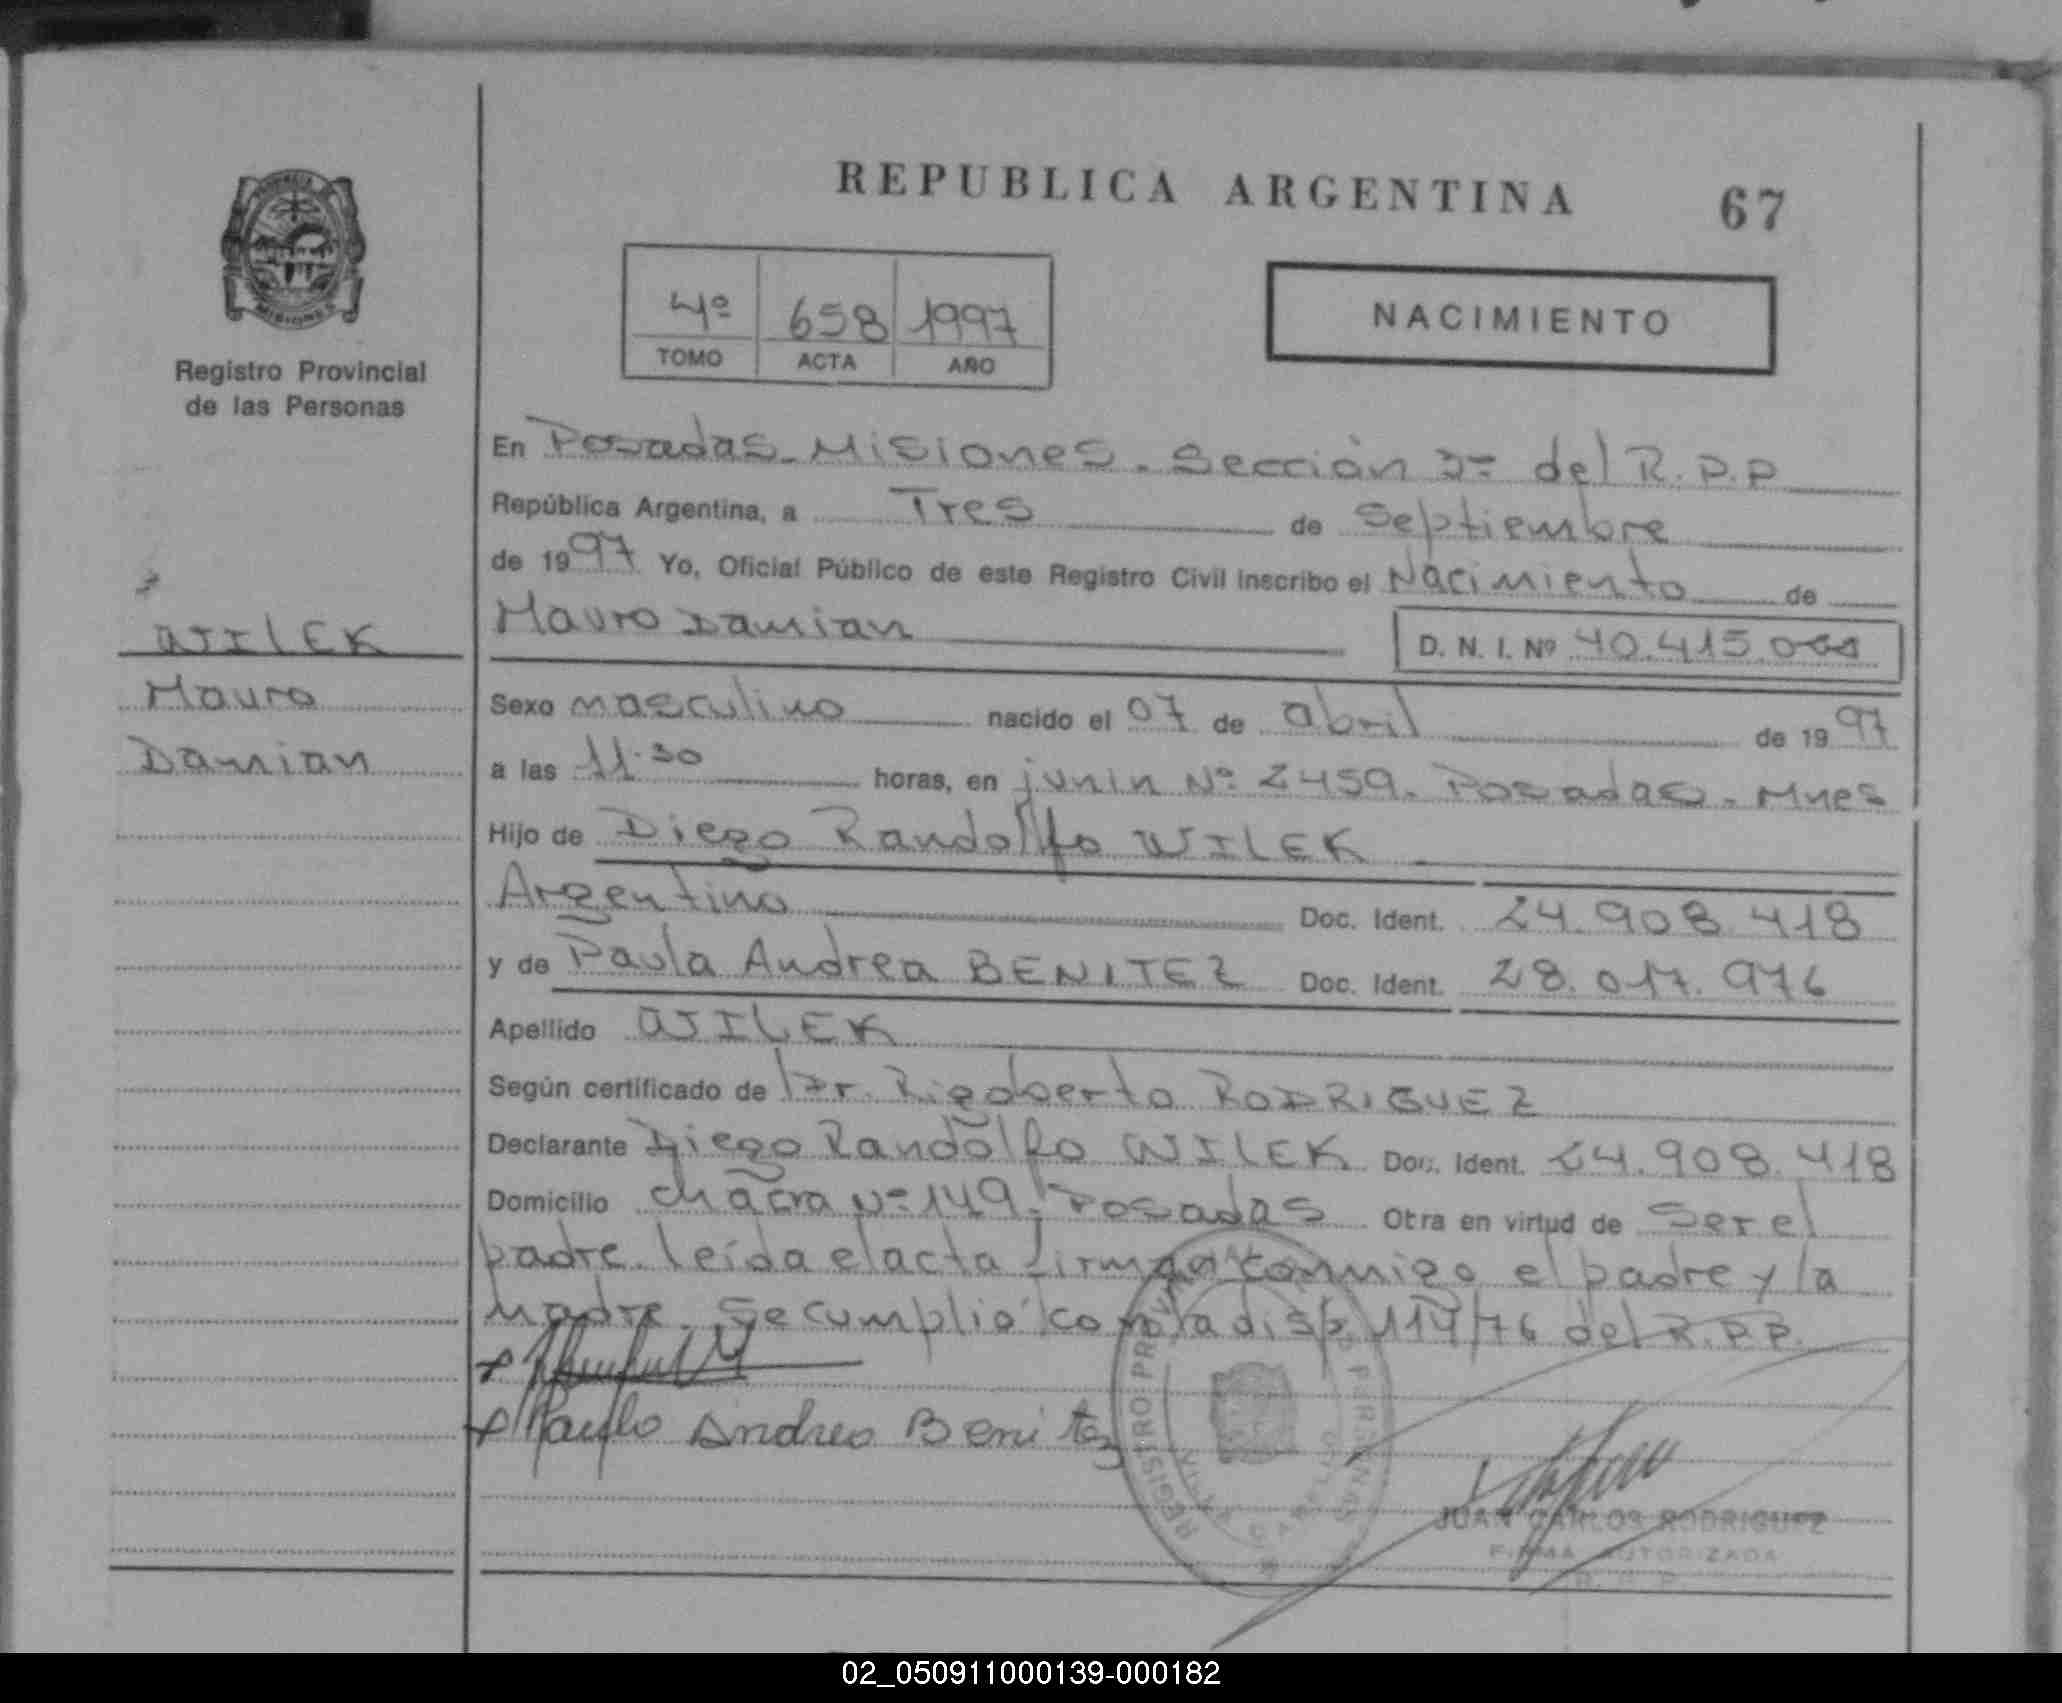 REPUBLICA ARGENTINA 67
PROVINCIA
MISIONES
Registro Provincial
de las Personas
4º 658 1997
TOMO ACTA AÑO
NACIMIENTO
En Posadas - Misiones. Sección 3º del R.P.P
República Argentina, a Tres de Septiembre
de 1997 Yo, Oficial Público de este Registro Civil inscribo el Nacimiento de
Mauro Damian
D. N. I. Nº 40.415.
WILEK
Mauro
Damian
Sexo masculino nacido el 07 de abril de 1997
a las 11.30 horas, en junin Nº 2459. Posadas - Mnes
Hijo de Diego Randolfo WILEK
Argentino Doc. Ident. 24.908.418
y de Paula Andrea BENITEZ Doc. Ident. 28.017.976
Apellido WILEK
Según certificado de Dr. Rigoberto RODRIGUEZ
Declarante Diego Randolfo WILEK Doc. Ident. 24.908.418
Domicilio chacra Nº 149. Posadas Otra en virtud de Ser el
padre. leída el acta firman conmigo el padre y la
madre. Se cumplió con la disp. 114/76 del R.P.P.
Paula Andrea Benitez
REGISTRO PROVINCIAL DE LAS PERSONAS
VILLA CABELLO
JUAN CARLOS RODRIGUEZ
FIRMA AUTORIZADA
R. P. P.
02_050911000139-000182